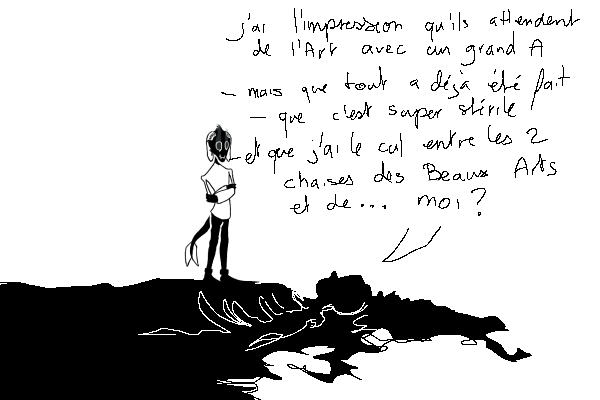 j'ai l'impression qu'ils attendent
de l'Art avec un grand A
- mais que tout a déjà été fait
- que c'est super stérile
- et que j'ai le cul entre les 2
chaises des Beaux Arts
et de... moi?